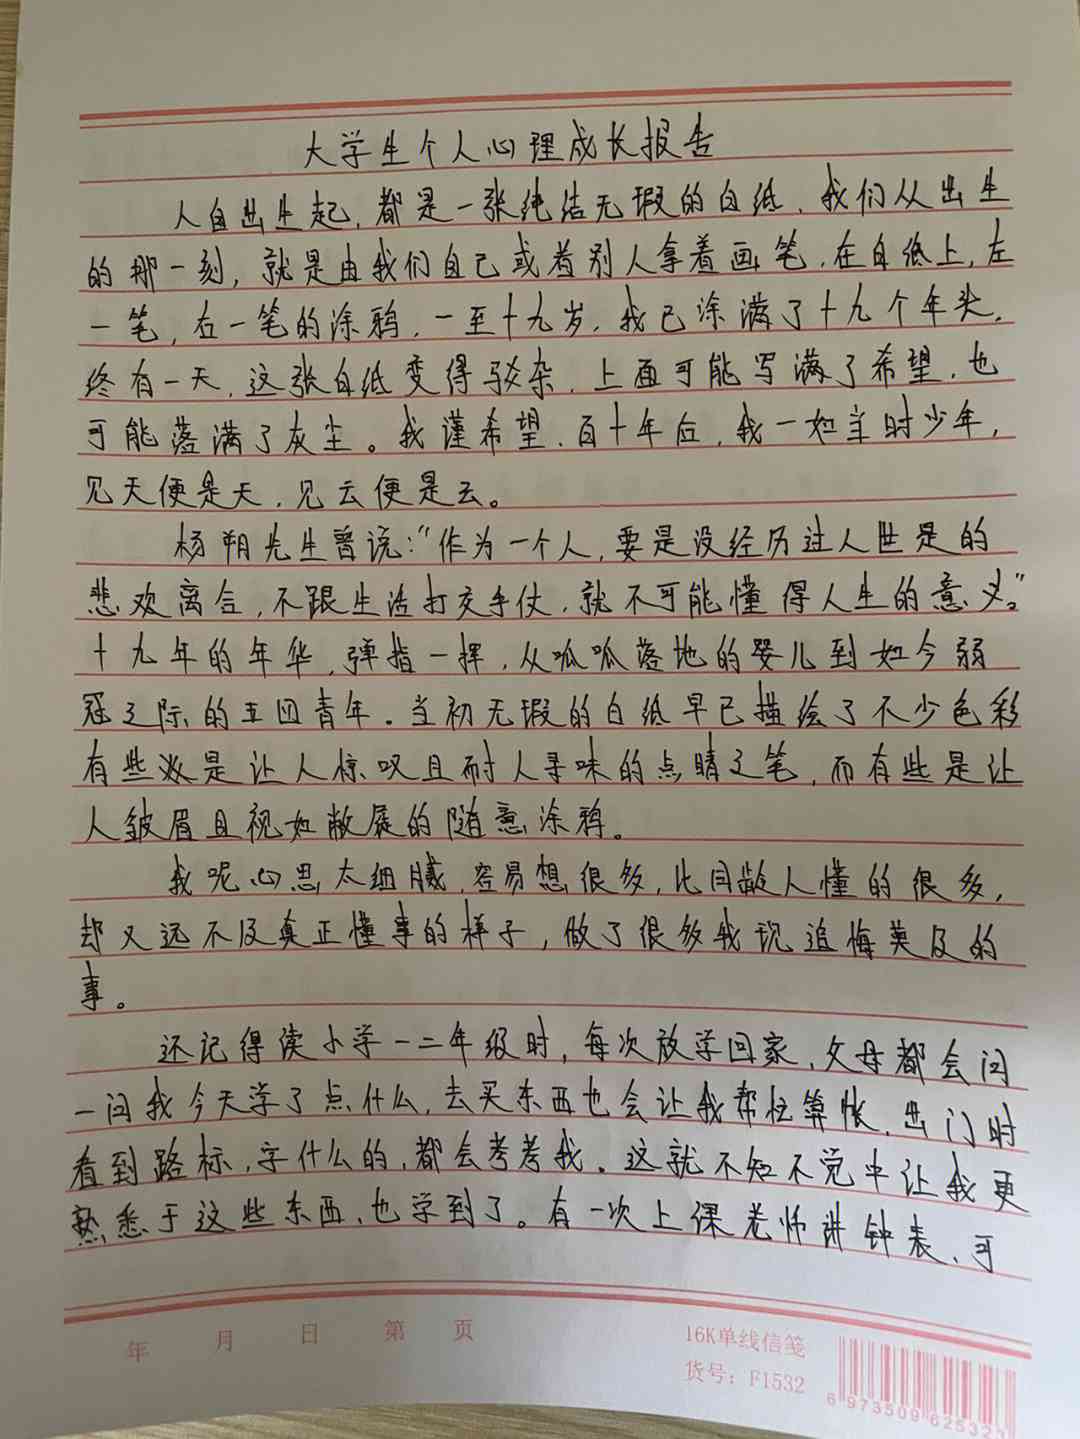 大学生个人心理成长报告
人自出生起，都是一张纯洁无瑕的白纸，我们从出生
的那一刻，就是由我们自己或者别人拿着画笔，在白纸上，左
一笔，右一笔的涂鸦，一至十九岁，我已涂满了十九个年头，
终有一天，这张白纸变得驳杂，上面可能写满了希望，也
可能落满了灰尘。我谨希望，百十年后，我一如主时少年，
见天便是天，见云便是云。
杨朔先生曾说：“作为一个人，要是没经历过人世是的
悲欢离合，不跟生活打交手仗，就不可能懂得人生的意义。”
十九年的年华，弹指一挥，从呱呱落地的婴儿到如今弱
冠之际的五四青年。当初无瑕的白纸早已描绘了不少色彩
有些是让人惊叹且耐人寻味的点睛之笔，而有些是让
人皱眉且视如敝屣的随意涂鸦。
我呢心思太细腻，容易想很多，比同龄人懂的很多，
却又远不及真正懂事的样子，做了很多我现追悔莫及的
事。
还记得读小学一二年级时，每次放学回家，父母都会问
一问我今天学了点什么，去买东西也会让我帮忙算帐，出门时
看到路标，字什么的，都会考考我。这就不知不觉中让我更
熟悉于这些东西，也学到了。有一次上课老师讲钟表，可
年 月 日 第 页
16K单线信笺
货号：F1532
6 973509 625321